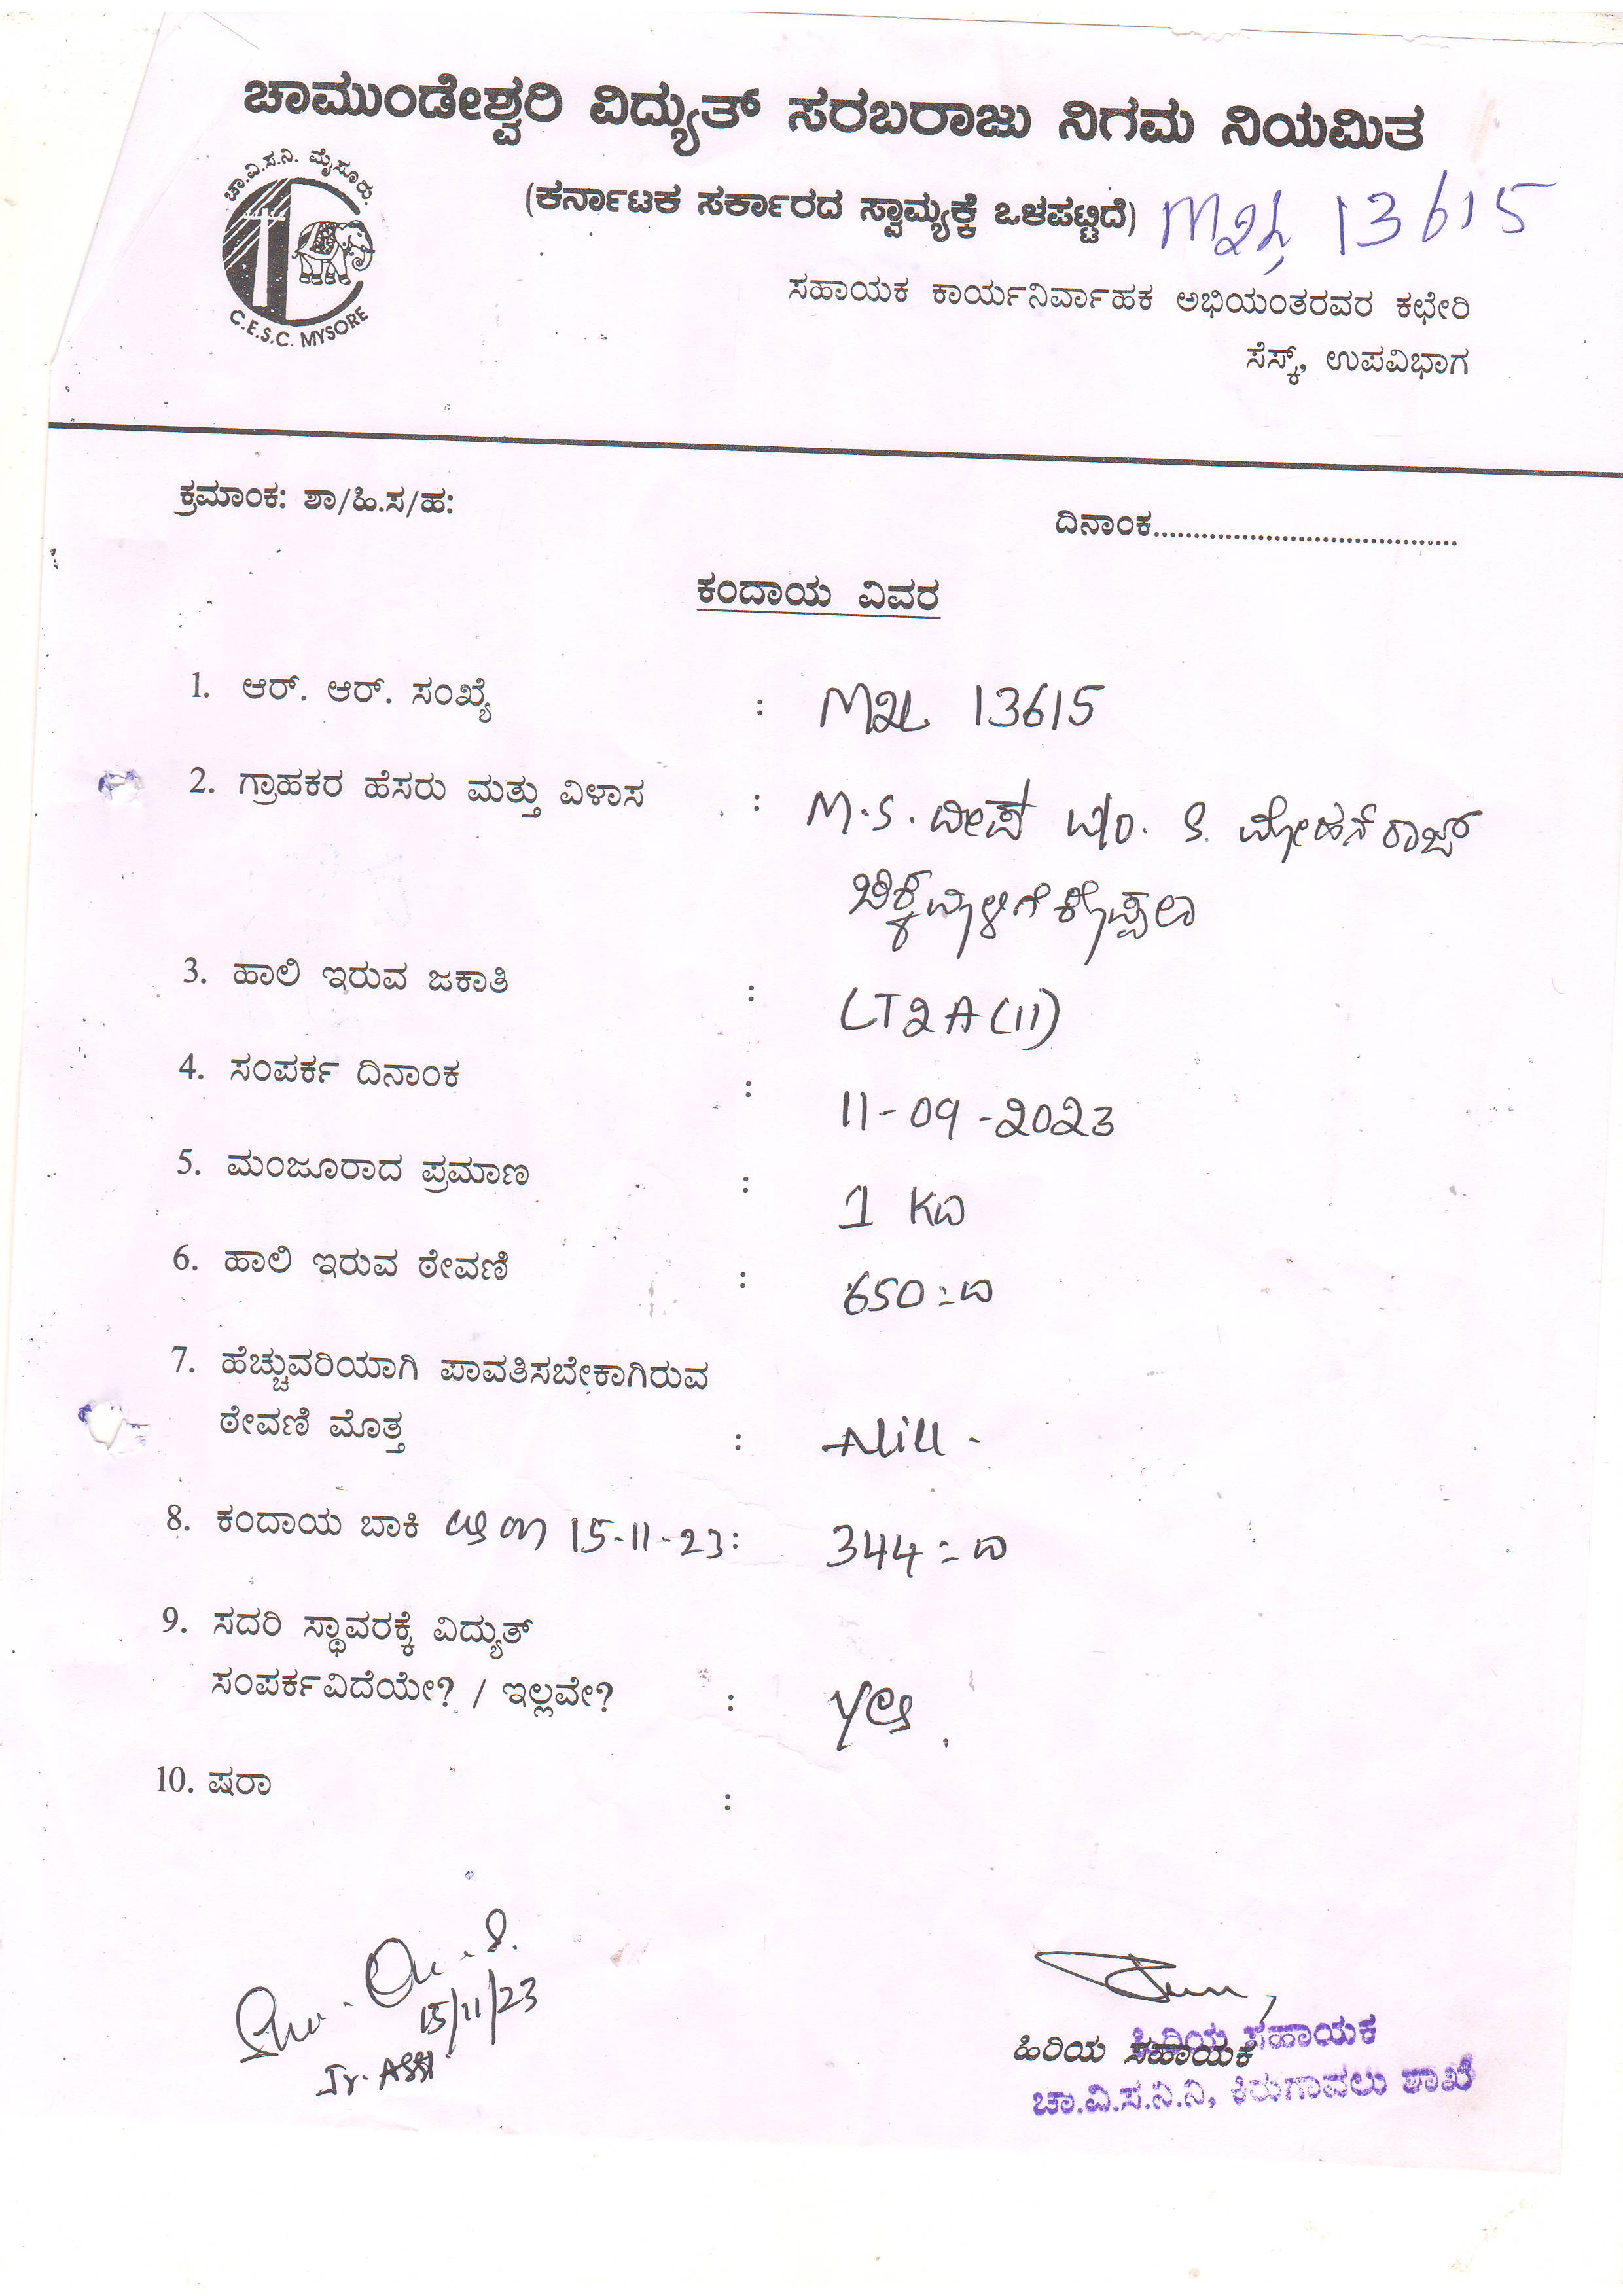 ಚಾಮುಂಡೇಶ್ವರಿ ವಿದ್ಯುತ್ ಸರಬರಾಜು ನಿಗಮ ನಿಯಮಿತ
ಚಾ.ವಿ.ಸ.ನಿ. ಮೈಸೂರು.
C.E.S.C. MYSORE
(ಕರ್ನಾಟಕ ಸರ್ಕಾರದ ಸ್ವಾಮ್ಯಕ್ಕೆ ಒಳಪಟ್ಟಿದೆ) M2L 13615
ಸಹಾಯಕ ಕಾರ್ಯನಿರ್ವಾಹಕ ಅಭಿಯಂತರವರ ಕಛೇರಿ
ಸೆಸ್ಕ್, ಉಪವಿಭಾಗ
ಕ್ರಮಾಂಕ: ಶಾ/ಹಿ.ಸ/ಹ:
ದಿನಾಂಕ......................................
ಕಂದಾಯ ವಿವರ
1. ಆರ್. ಆರ್. ಸಂಖ್ಯೆ : M2L 13615
2. ಗ್ರಾಹಕರ ಹೆಸರು ಮತ್ತು ವಿಳಾಸ : M.S. ದೀಪ W/O. S. ಮೋಹನ್ ರಾಜ್
3. ಹಾಲಿ ಇರುವ ಜಕಾತಿ : LT2A(11)
4. ಸಂಪರ್ಕ ದಿನಾಂಕ : 11-09-2023
5. ಮಂಜೂರಾದ ಪ್ರಮಾಣ : 1 KW
6. ಹಾಲಿ ಇರುವ ಠೇವಣಿ : 650=00
7. ಹೆಚ್ಚುವರಿಯಾಗಿ ಪಾವತಿಸಬೇಕಾಗಿರುವ
ಠೇವಣಿ ಮೊತ್ತ : -Nill-
8. ಕಂದಾಯ ಬಾಕಿ as on 15-11-23: 344=00
9. ಸದರಿ ಸ್ಥಾವರಕ್ಕೆ ವಿದ್ಯುತ್
ಸಂಪರ್ಕವಿದೆಯೇ? / ಇಲ್ಲವೇ? : Yes.
10. ಷರಾ :
15/11/23
Jr. Asst
ಹಿರಿಯ ಸಹಾಯಕ
ಹಿರಿಯ ಸಹಾಯಕ
ಚಾ.ವಿ.ಸ.ನಿ.ನಿ, ಕಿರುಗಾವಲು ಶಾಖೆ